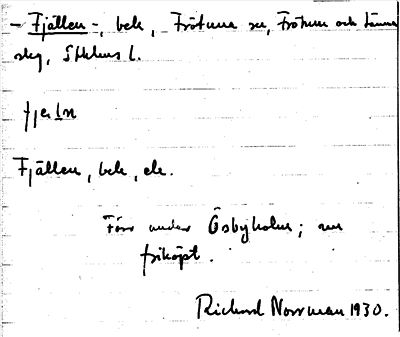 - Fjällen -, bek, Frötuna sn, Frötuna och Länna
skg, Sthlms l.
fjeln
Fjällen, bek, ek.
Förr under Össbyholm; nu
friköpt.
Richard Norrman 1930.